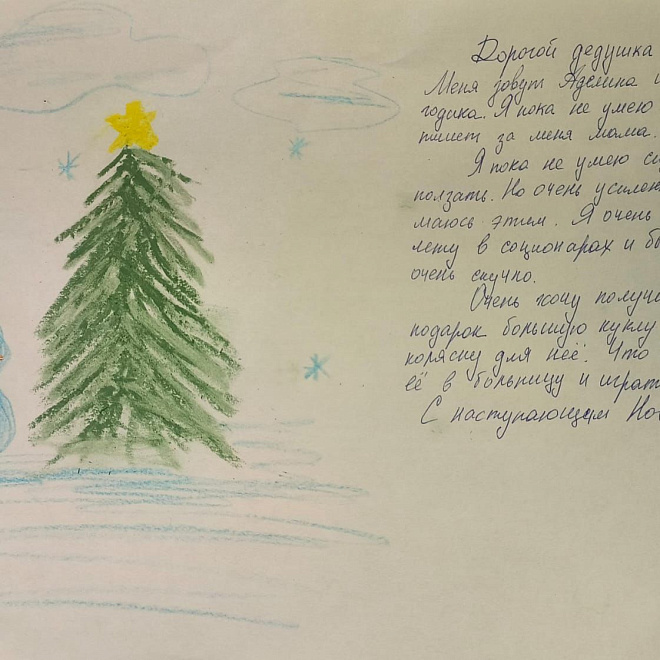 Дорогой дедушка
Меня зовут Аделина и
годика. Я пока не умею
пишет за меня мама.
Я пока не умею си
ползать. Но очень усилен
маюсь этим. Я очень
лежу в соционарах и
очень скучно.
Очень хочу получи
подарок большую куклу
коляску для неё. Что
её в больницу и играт
С наступающим Но